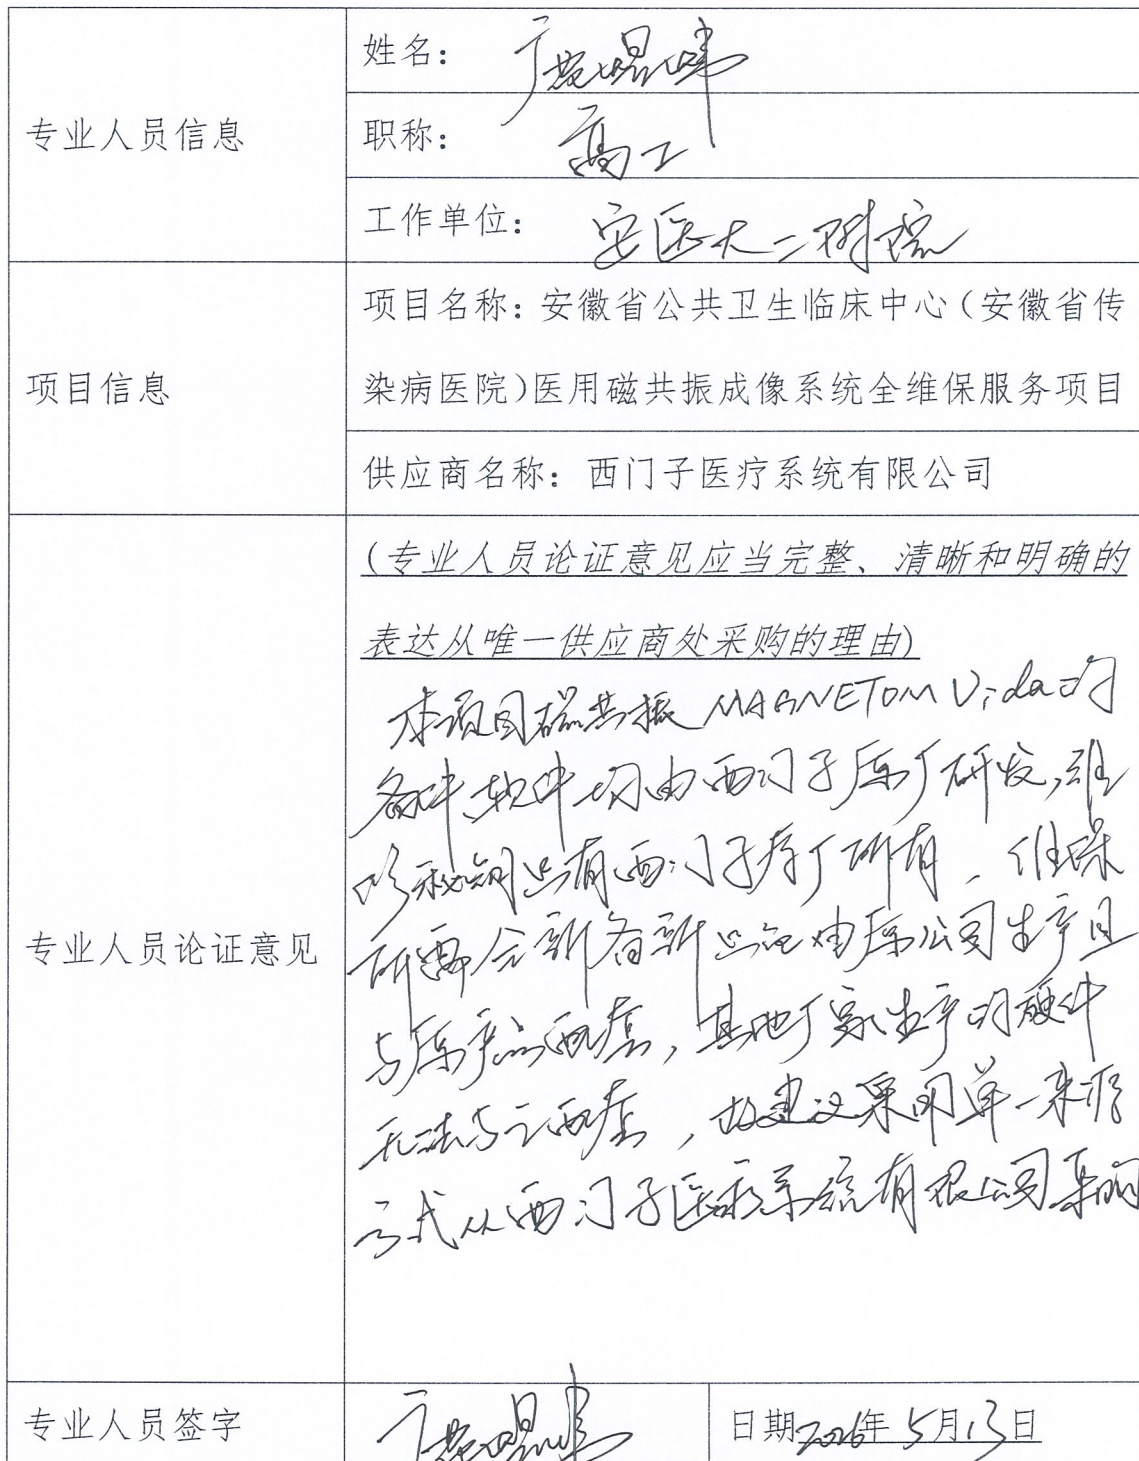 专业人员信息
姓名：
职称：高工
工作单位：安医大二附院
项目信息
项目名称：安徽省公共卫生临床中心（安徽省传
染病医院）医用磁共振成像系统全维保服务项目
供应商名称：西门子医疗系统有限公司
专业人员论证意见
(专业人员论证意见应当完整、清晰和明确的
表达从唯一供应商处采购的理由)
本项目磁共振 MAGNETOM Vida 的
备件、软件均由西门子原厂研发,维
修秘钥只有西门子原厂所有，维保
所需全新备新只能由原公司生产且
与原产品配套，其他厂家生产的硬件
无法与之配套，故建议采用单一来源
方式从西门子医疗系统有限公司采购
专业人员签字
日期2026年5月13日